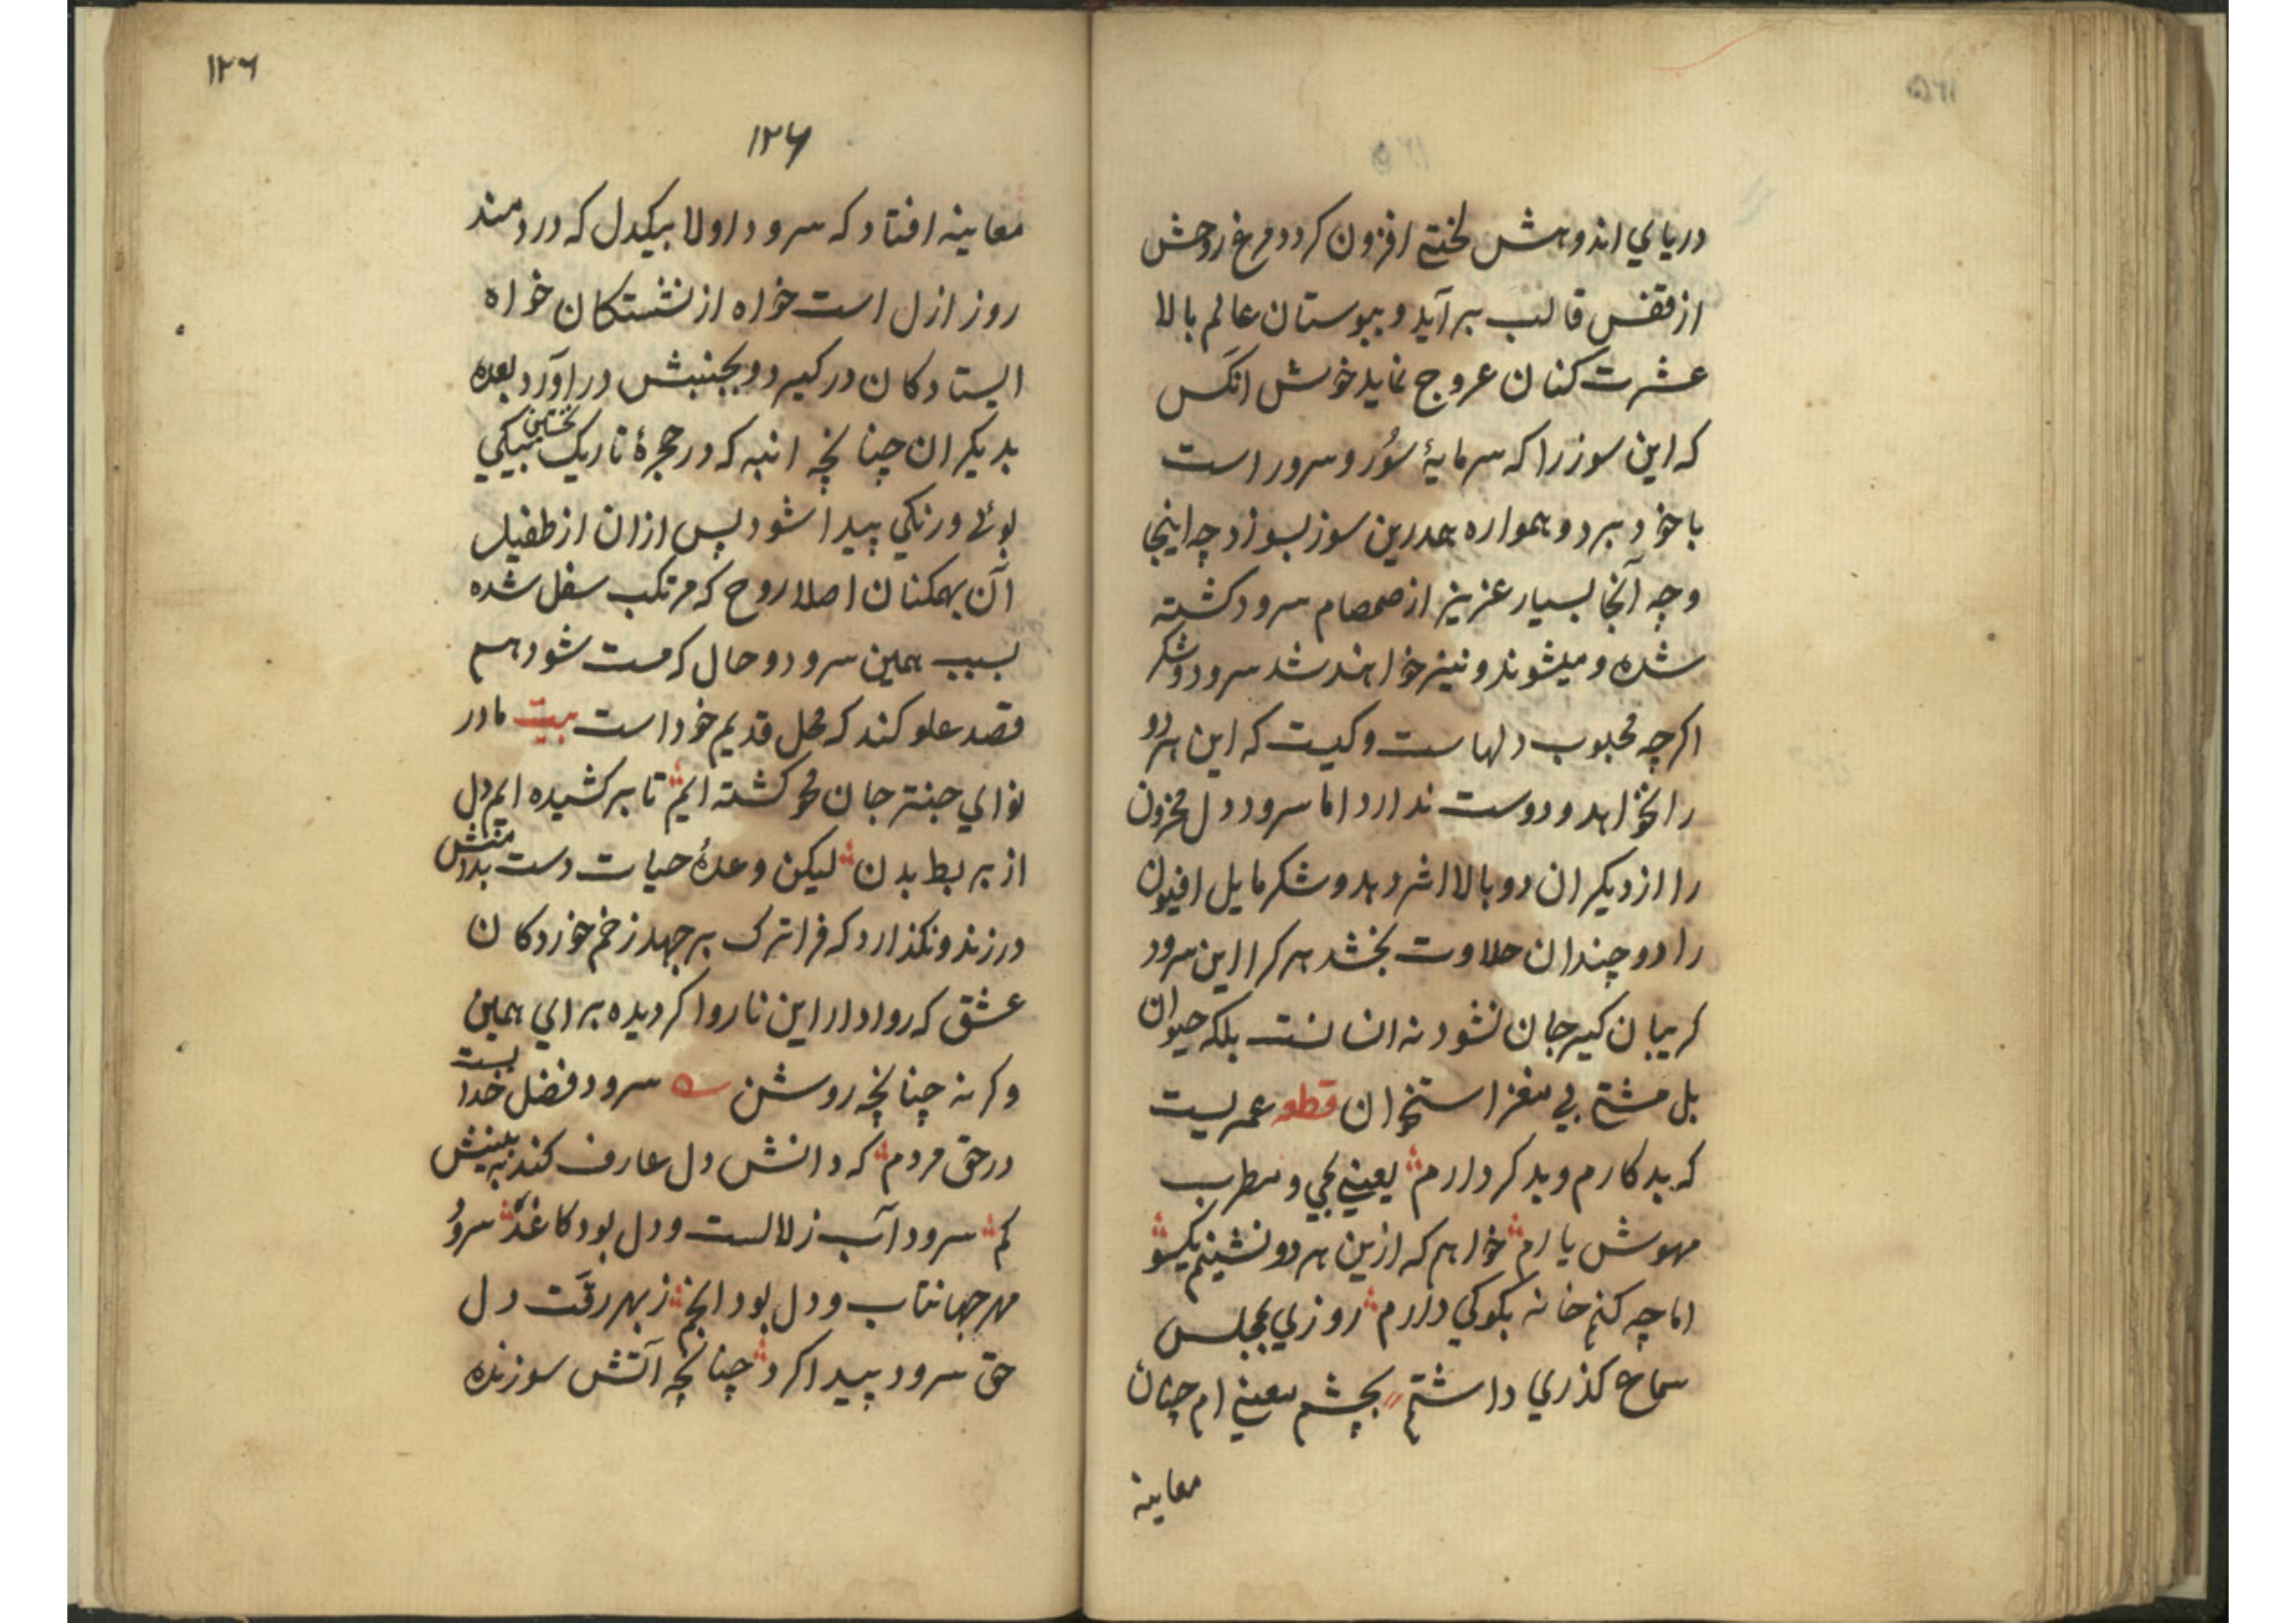 دریای اندوهش لختی افزون کردد مرغ روحش
از قفس قالب برآید و ببوستان عالم بالا
عشرت کنان عروج نماید خوش انکس
که این سوز را که سرمایهٔ سُور و سرور است
با خود برد و همواره همدرین سوز بسوزد چه اینجا
و چه آنجا بسیار عزیز از صمصام سرود کشته
شده و میشوند و نیز خواهند شد سرود و شکر
اکرچه محبوب دلهاست و کیست که این هر دو
را نخواهد و دوست ندارد اما سرود دل محزون
را از دیکران دو بالا اثر دهد و شکر مایل افیون
را دو چندان حلاوت بخشد هر کرا این سرود
کریبان کیر جان نشود نه انسانست بلکه حیوان
بل مشتی بی مغز استخوان قطعه عمریست
که بدکارم و بد کردارم یعنی بمی و مطرب
مهوش یارم خواهم که ازین هر دو نشینم یکسو
اما چه کنم خانه بکوکی دارم روزی بمجلس
سماع کذری داشتم بچشم معنی ام چنان
معاینه
۱۲۶
۱۲۶
معاینه افتاد که سرود اولا بیکدل که دردمند
روز ازل است خواه از نشستکان خواه
ایستادکان درکیرد و بجنبش دراورد بعده
بدیکران چنانچه انبه که در حجرهٔ تاریک نخستین بیکی
بوئی و رنکی پیدا شود پس ازان از طفیل
آن بهمکنان اصلا روح که مرتکب سفل شده
بسبب همین سرود و حال که مست شود هم
قصد علو کند که محل قدیم خود است بیت مادر
نوای جنتر جان محو کشته ایم تا برکشیده ایم دل
از بربط بدن لیکن وعدهٔ حیات دست بدامنش
درزند و نکذارد که فراترک برجهد زخم خوردکان
عشق که روادار این ناروا کردیده برای همین
وکرنه چنانچه روشن ست سرود فضل خدا
در حق مردم که دانش دل عارف کند به بینش
کم سرود آب زلالست و دل بود کاغذ سرود
مهر جهانتاب و دل بود انجم ز بهر رقّت دل
حق سرود پیدا کرد چنانچه آتش سوزنده